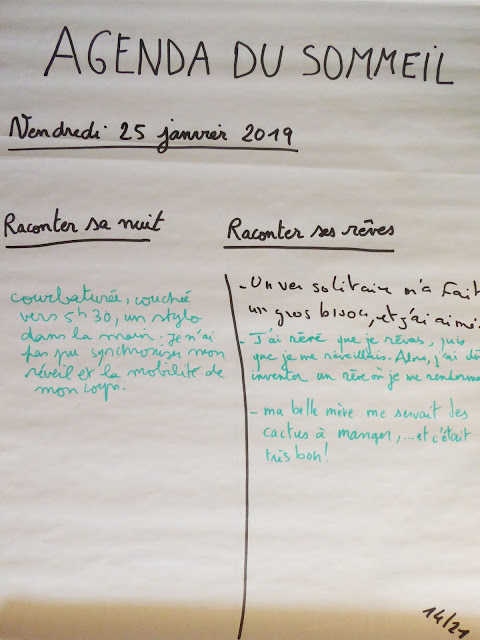 AGENDA DU SOMMEIL
Vendredi 25 janvier 2019
Raconter sa nuit
courbaturée, couchée
vers 5h30, un stylo
dans la main. Je n'ai
pas pu synchroniser mon
réveil et la mobilité de
mon corps.
Raconter ses rêves
- Un ver solitaire m'a fait
un gros bisou, et j'ai aimé
- J'ai rêvé que je rêvais, puis
que je me réveillais. Alors, j'ai dû
inventer un rêve où je me rendorme
- ma belle mère me servait des
cactus à manger,... et c'était
très bon!
14/21